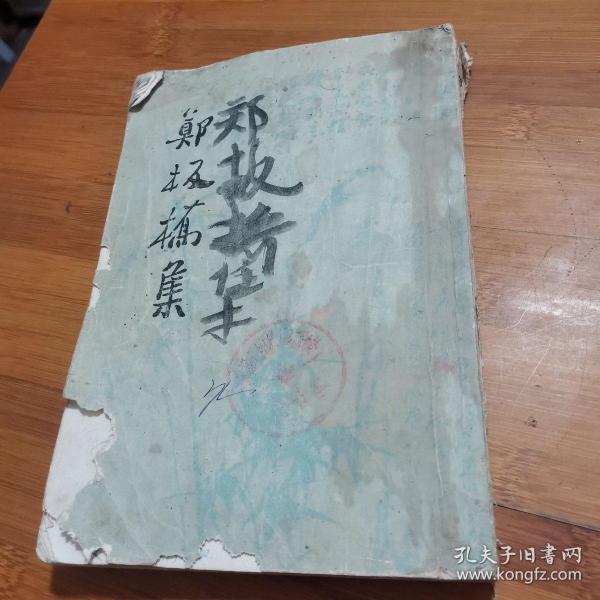 郑板桥集
鄭板橋集
孔夫子旧书网
www.kongfz.com